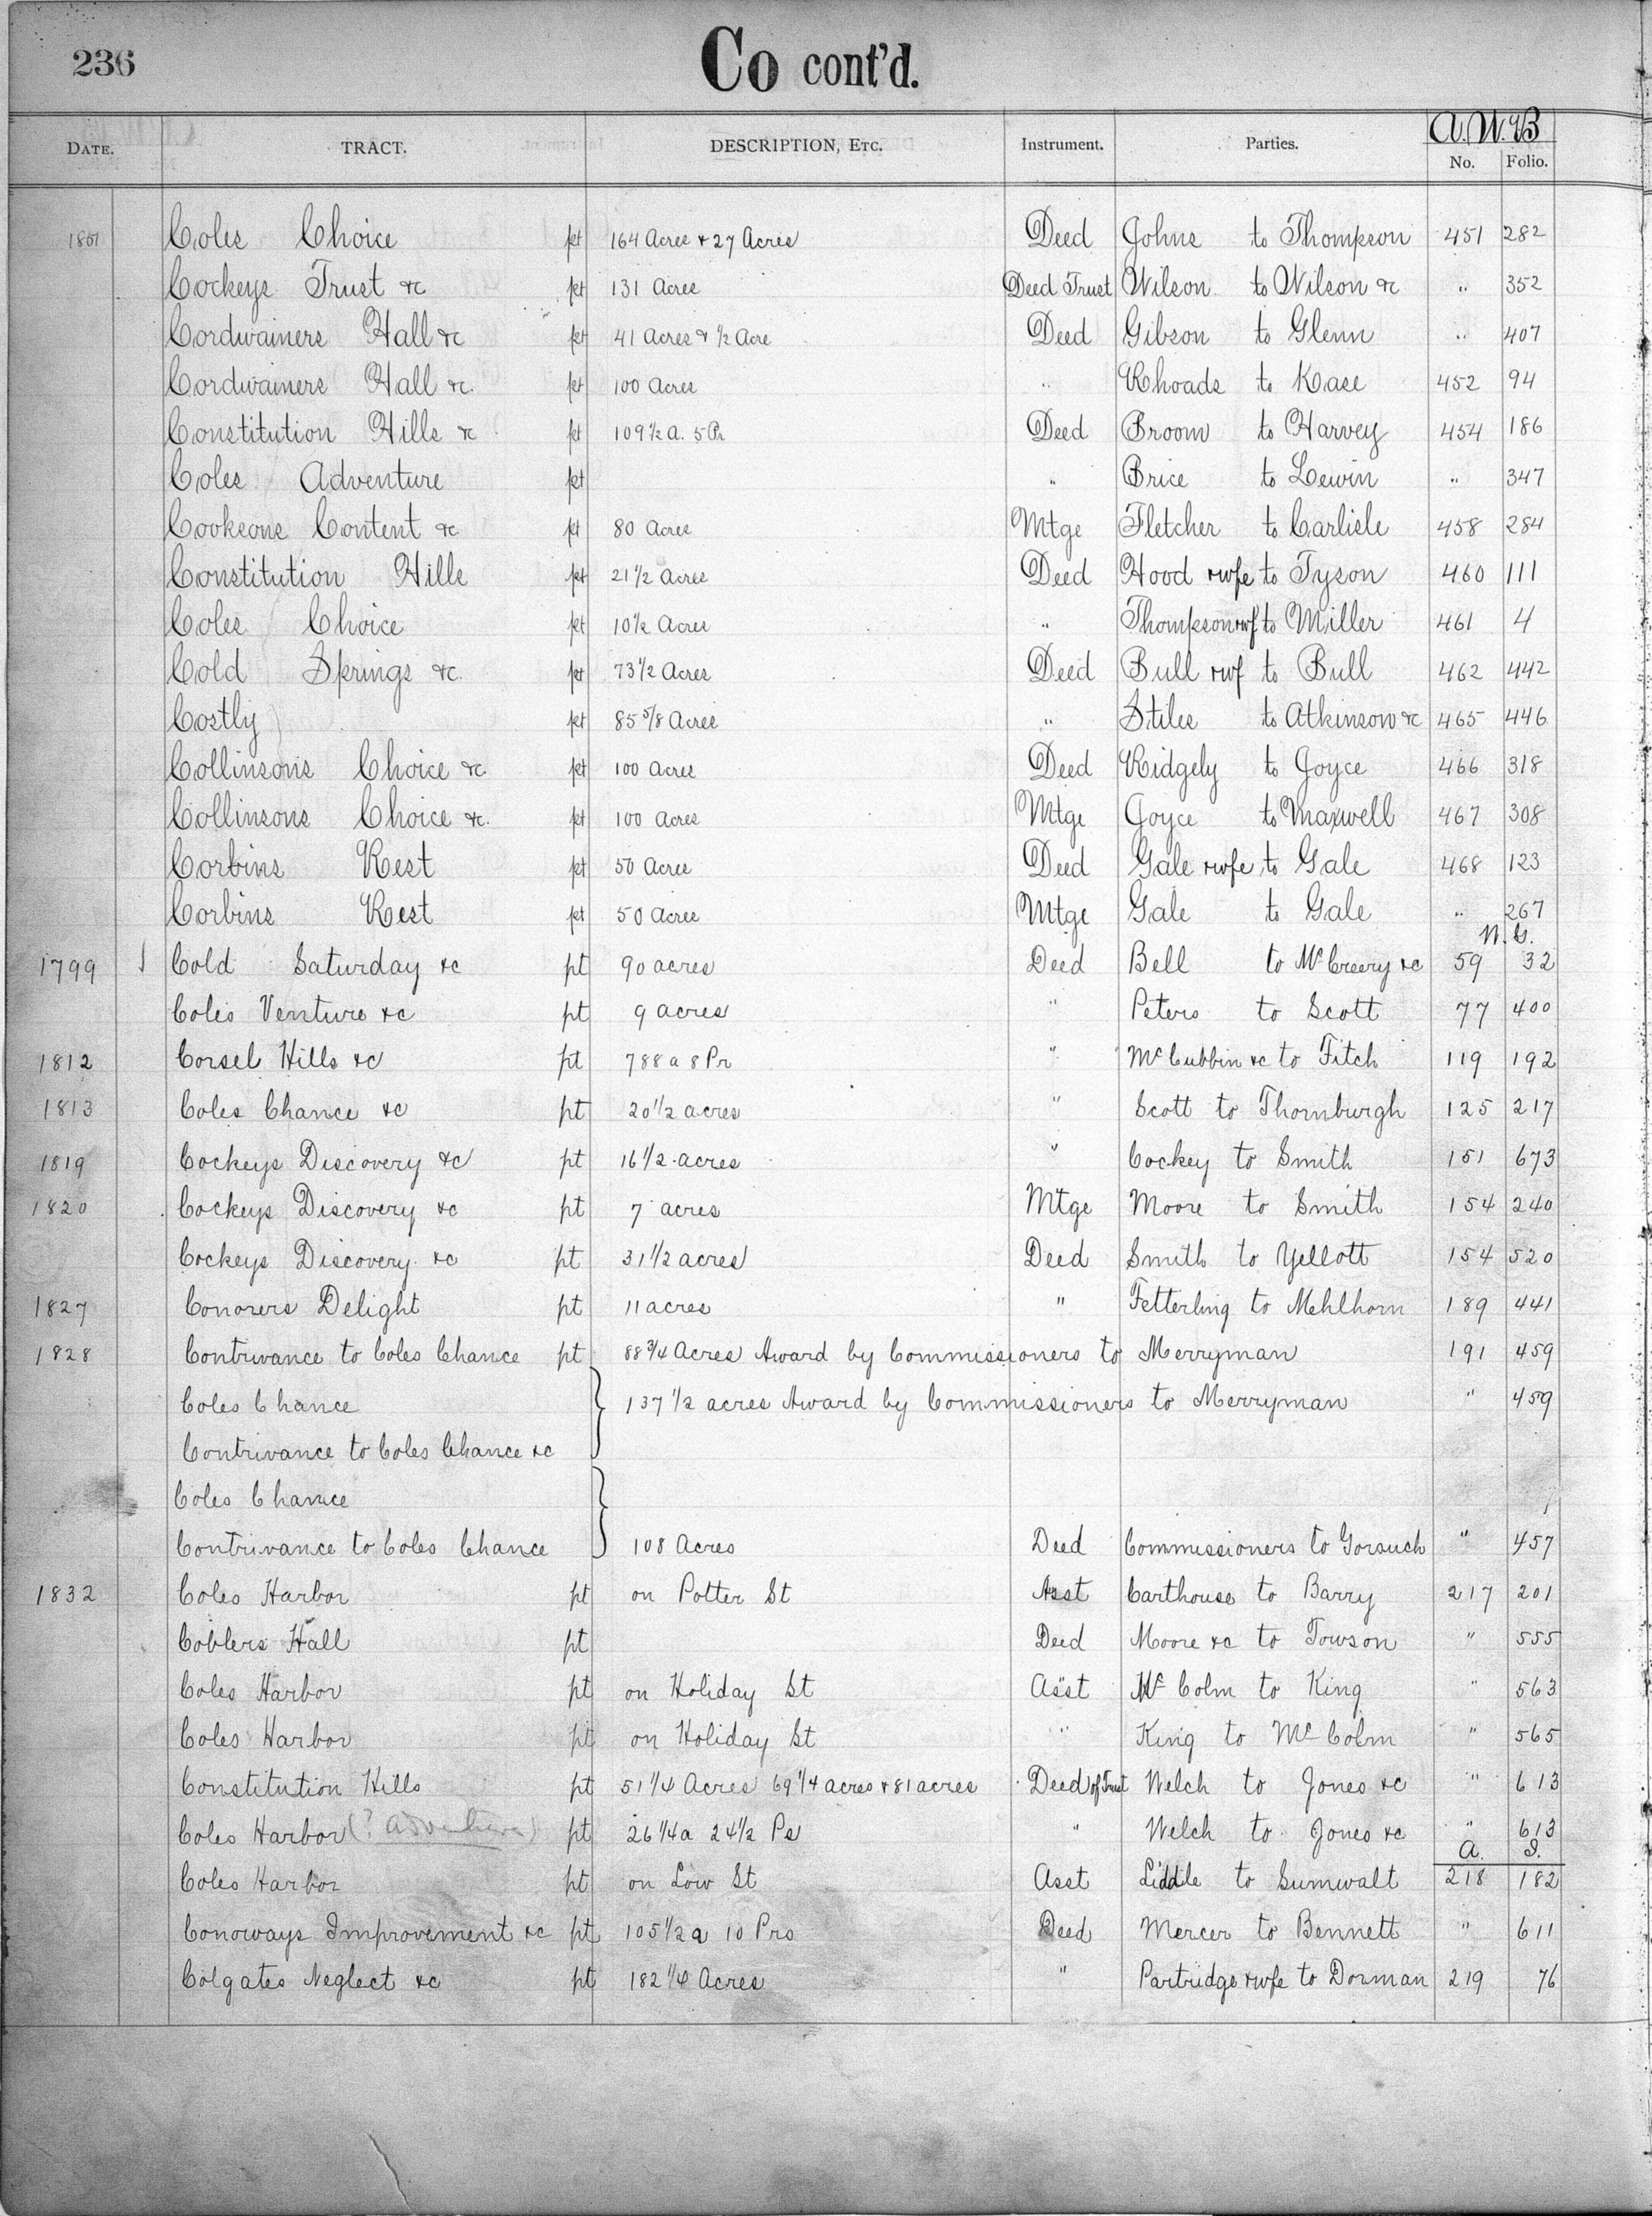 236
Co cont'd.
DATE. TRACT. DESCRIPTION, ETC. Instrument. Parties. A.W.B No. Folio.
1851 Coles Choice pt 164 Acres & 27 Acres Deed Johns to Thompson 451 282
Cockeys Trust &c pt 131 Acres Deed Trust Wilson to Wilson &c " 352
Cordwainers Hall &c pt 41 Acres & 1/2 Acre Deed Gibson to Glenn " 407
Cordwainers Hall &c. pt 100 Acres " Rhoads to Kase 452 94
Constitution Hills &c pt 109 1/2 a. 5 Pr Deed Broom to Harvey 454 186
Coles Adventure pt " Brice to Lewin " 347
Cooksons Content &c pt 80 Acres Mtge Fletcher to Carlisle 458 284
Constitution Hills pt 21 1/2 Acres Deed Hood & wfe to Tyson 460 111
Coles Choice pt 10 1/2 Acres " Thompson & wf to Miller 461 4
Cold Springs &c. pt 73 1/2 Acres Deed Bull & wf to Bull 462 442
Costly pt 85 5/8 Acres " Stiles to Atkinson &c 465 446
Collinsons Choice &c. pt 100 Acres Deed Ridgely to Joyce 466 318
Collinsons Choice &c. pt 100 Acres Mtge Joyce to Maxwell 467 308
Corbins Rest pt 50 Acres Deed Gale & wfe to Gale 468 123
Corbins Rest pt 50 Acres Mtge Gale to Gale " 267
W. G.
1799 Cold Saturday &c pt 90 acres Deed Bell to McCreery &c 59 32
Coles Venture &c pt 9 acres " Peters to Scott 77 400
1812 Corsel Hills &c pt 788 a 8 Pr " McCubbin &c to Fitch 119 192
1813 Coles Chance &c pt 20 1/2 acres " Scott to Thornburgh 125 217
1819 Cockeys Discovery &c pt 16 1/2 acres " Cockey to Smith 151 673
1820 Cockeys Discovery &c pt 7 acres Mtge Moore to Smith 154 240
Cockeys Discovery &c pt 31 1/2 acres Deed Smith to Yellott 154 520
1827 Conorers Delight pt 11 acres " Fetterling to Mehlhorn 189 441
1828 Contrivance to Coles Chance pt 88 3/4 Acres Award by Commissioners to Merryman 191 459
Coles Chance 137 1/2 acres Award by Commissioners to Merryman " 459
Contrivance to Coles Chance &c
Coles Chance
Contrivance to Coles Chance 108 Acres Deed Commissioners to Gorsuch " 457
1832 Coles Harbor pt on Potter St Asst Carthouse to Barry 217 201
Coblers Hall pt Deed Moore &c to Towson " 555
Coles Harbor pt on Holiday St Asst McColm to King " 563
Coles Harbor pt on Holiday St " King to McColm " 565
Constitution Hills pt 51 1/4 Acres 69 1/4 acres & 81 acres Deed of Trust Welch to Jones &c " 613
Coles Harbor (? adventure) pt 26 1/4 a 24 1/2 Ps " Welch to Jones &c " 613
A. I.
Coles Harbor pt on Low St Asst Liddle to Sumwalt 218 182
Conoways Improvement &c pt 105 1/2 a 10 Prs Deed Mercer to Bennett " 611
Colgates Neglect &c pt 182 1/4 Acres " Partridge & wfe to Dorman 219 76